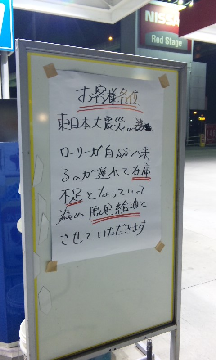 NISSAN
Red Stage
お客様各位
東日本大震災の為
ローリーが自給に来
るのが遅れて在庫
不足となっている
為め 限定給油と
させていただきます